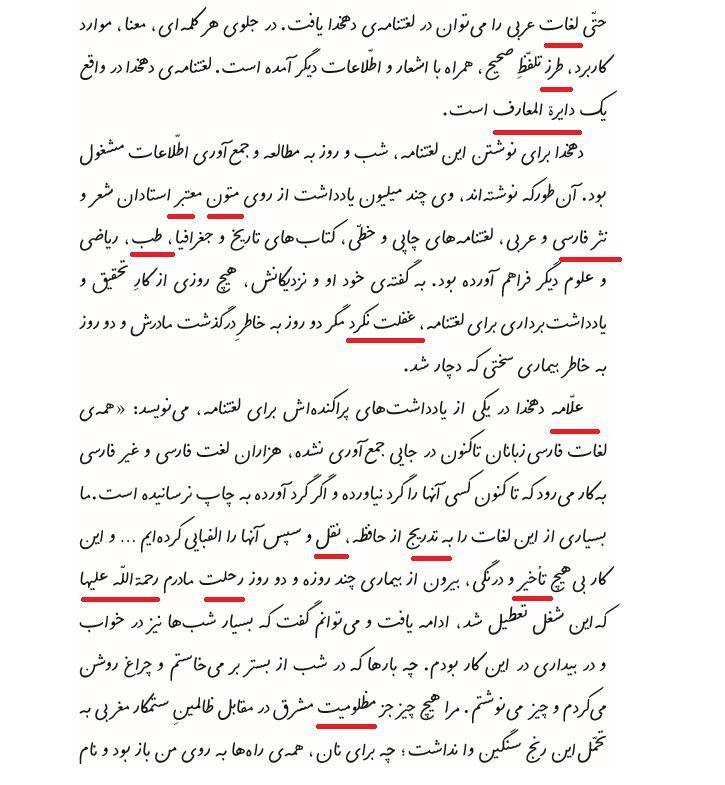 حتّی لغات عربی را می‌توان در لغتنامه‌ی دهخدا یافت. در جلوی هر کلمه‌ای، معنا، موارد
کاربرد، طرز تلفّظِ صحیح، همراه با اشعار و اطّلاعات دیگر آمده است. لغتنامه‌ی دهخدا در واقع
یک دایرة المعارف است.
دهخدا برای نوشتن این لغتنامه، شب و روز به مطالعه و جمع‌آوری اطّلاعات مشغول
بود. آن‌طور که نوشته‌اند، وی چند میلیون یادداشت از روی متون معتبر استادان شعر و
نثر فارسی و عربی، لغتنامه‌های چاپی و خطّی، کتاب‌های تاریخ و جغرافیا، طب، ریاضی
و علوم دیگر فراهم آورده بود. به گفته‌ی خود او و نزدیکانش، هیچ روزی از کارِ تحقیق و
یادداشت‌برداری برای لغتنامه، غفلت نکرد مگر دو روز به خاطرِ درگذشت مادرش و دو روز
به خاطر بیماری سختی که دچار شد.
علّامه دهخدا در یکی از یادداشت‌های پراکنده‌اش برای لغتنامه، می‌نویسد: «همه‌ی
لغات فارسی‌زبانان تاکنون در جایی جمع‌آوری نشده، هزاران لغت فارسی و غیر فارسی
به‌کار می‌رود که تاکنون کسی آنها را گرد نیاورده و اگر گرد آورده به چاپ نرسانیده است. ما
بسیاری از این لغات را به تدریج از حافظه، نقل و سپس آنها را الفبایی کرده‌ایم ... و این
کار بی هیچ تأخیر و درنگی، بیرون از بیماری چند روزه و دو روز رحلت مادرم رحمة اللّه علیها
که این شغل تعطیل شد، ادامه یافت و می‌توانم گفت که بسیار شب‌ها نیز در خواب
و در بیداری در این کار بودم. چه بارها که در شب از بستر بر می‌خاستم و چراغ روشن
می‌کردم و چیز می‌نوشتم. مرا هیچ چیز جز مظلومیت مشرق در مقابل ظالمینِ ستمکار مغربی به
تحمّل این رنج سنگین وا نداشت؛ چه برای نان، همه‌ی راه‌ها به روی من باز بود و نام